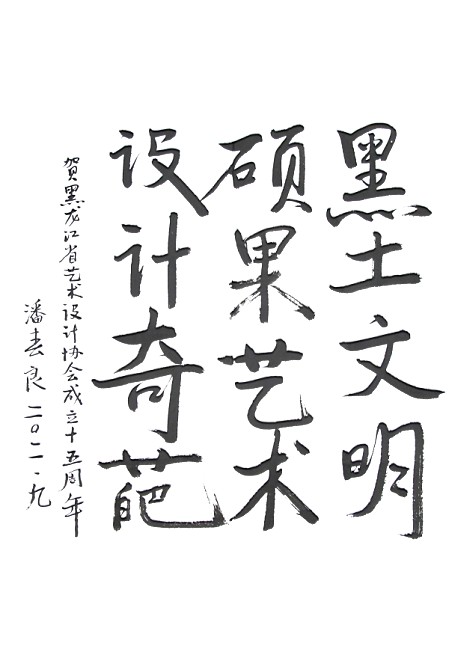 黑土文明
硕果艺术
设计奇葩
贺黑龙江省艺术设计协会成立十五周年
潘春良 二〇二一·九